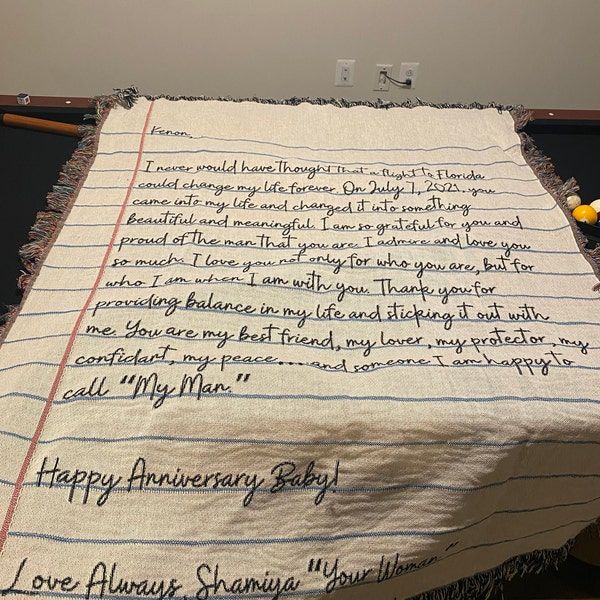 Kenon,
I never would have thought that a flight to Florida
could change my life forever. On July 7, 2021, you
came into my life and changed it into something
beautiful and meaningful. I am so grateful for you and
proud of the man that you are. I admire and love you
so much. I love you not only for who you are, but for
who I am when I am with you. Thank you for
providing balance in my life and sticking it out with
me. You are my best friend, my lover, my protector, my
confidant, my peace.... and someone I am happy to
call "My Man."
Happy Anniversary Baby!
Love Always, Shamiya "Your Woman"